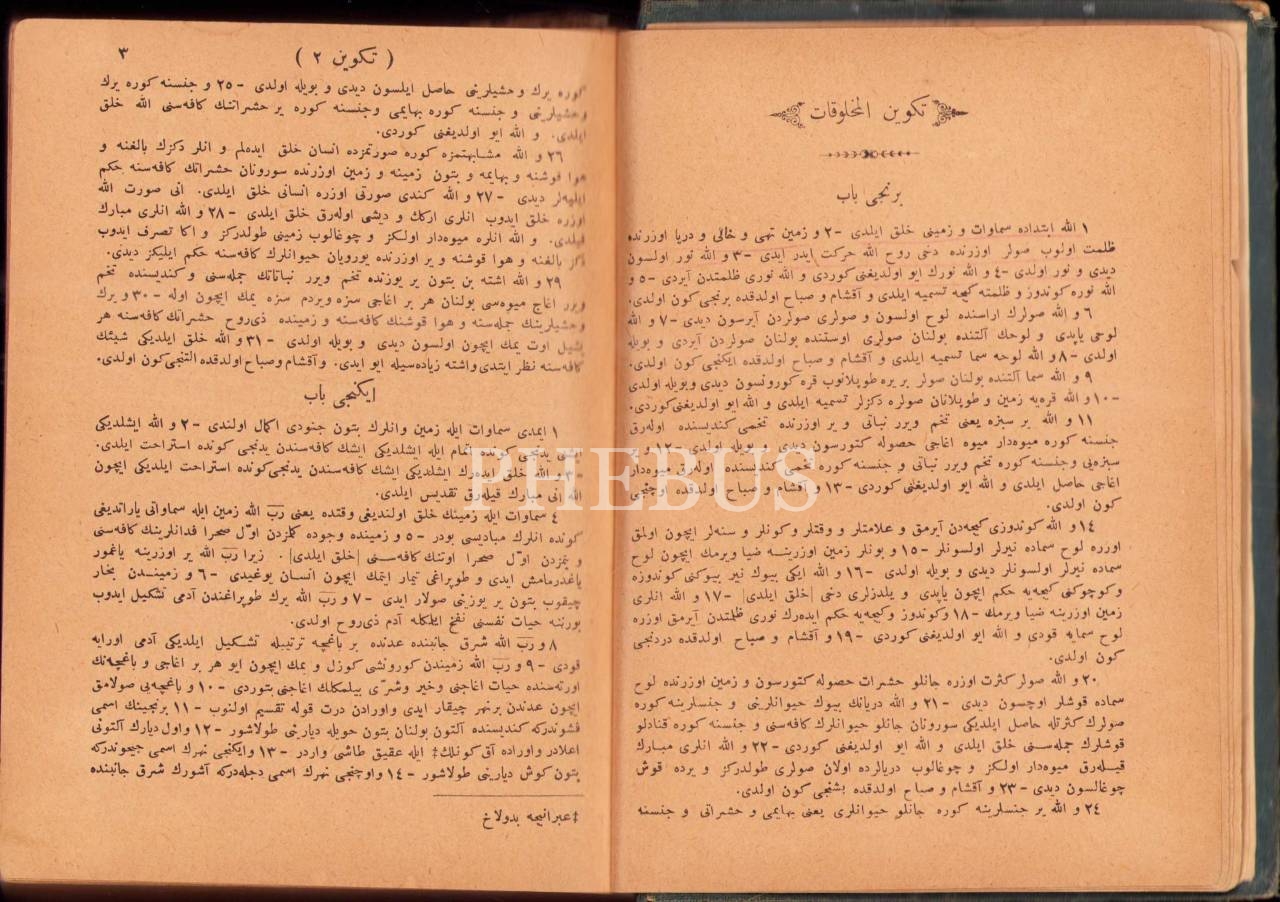 تكوين المخلوقات
برنجى باب
١ الله ابتداده سماوات و زمينى خلق ايلدى -٢ و زمين تهى و خالى و دريا اوزرنده
ظلمت اولوب صولر اوزرنده دخى روح الله حركت ايدر ايدى -٣ و الله نور اولسون
ديدى و نور اولدى -٤ و الله نورك ايو اولديغنى كوردى و الله نورى ظلمتدن آيردى -٥ و
الله نوره كوندوز و ظلمته كيجه تسميه ايلدى و آقشام و صباح اولدقده برنجى كون اولدى.
٦ و الله صولرك اراسنده لوح اولسون و صولرى صولردن آيرسون ديدى -٧ و الله
لوحى ياپدى و لوحك آلتنده بولنان صولرى اوستنده بولنان صولردن آيردى و بويله
اولدى -٨ و الله لوحه سما تسميه ايلدى و آقشام و صباح اولدقده ايكنجى كون اولدى.
٩ و الله سما آلتنده بولنان صولر بر يره طوپلانوب قره كورونسون ديدى و بويله اولدى
-١٠ و الله قره‌يه زمين و طوپلانان صولره دكزلر تسميه ايلدى و الله ايو اولديغنى كوردى.
١١ و الله ير سبزه يعنى تخم ويرر نباتى و ير اوزرنده تخمى كنديسنده اوله‌رق
جنسنه كوره ميوه‌دار ميوه اغاجى حصوله كتورسون ديدى و بويله اولدى -١٢ و ير
سبزه‌يى و جنسنه كوره تخم ويرر نباتى و جنسنه كوره تخمى كنديسنده اوله‌رق ميوه‌دار
اغاجى حاصل ايلدى و الله ايو اولديغنى كوردى -١٣ و آقشام و صباح اولدقده اوچنجى
كون اولدى.
١٤ و الله كوندوزى كيجه‌دن آيرمق و علامتلر و وقتلر و كونلر و سنه‌لر ايچون اولق
اوزره لوح سماده نيرلر اولسونلر -١٥ و بونلر زمين اوزرينه ضيا ويرمك ايچون لوح
سماده نيرلر اولسونلر ديدى و بويله اولدى -١٦ و الله ايكى بيوك نير بيوكنى كوندوزه
و كوچوكنى كيجه‌يه حكم ايچون ياپدى و يلدزلرى دخى |خلق ايلدى| -١٧ و الله انلرى
زمين اوزرينه ضيا ويرمك -١٨ و كوندوز و كيجه‌يه حكم ايده‌رك نورى ظلمتدن آيرمق اوزره
لوح سمايه قودى و الله ايو اولديغنى كوردى -١٩ و آقشام و صباح اولدقده دردنجى
كون اولدى.
٢٠ و الله صولر كثرت اوزره جانلو حشرات حصوله كتورسون و زمين اوزرنده لوح
سماده قوشلر اوچسون ديدى -٢١ و الله دريانك بيوك حيوانلرينى و جنسلرينه كوره
صولرك كثرتله حاصل ايلديكى سورونان جانلو حيوانلرك كافه‌سنى و جنسنه كوره قنادلو
قوشلرك جمله‌سنى خلق ايلدى و الله ايو اولديغنى كوردى -٢٢ و الله انلرى مبارك
قيله‌رق ميوه‌دار اولكز و چوغالوب دريالرده اولان صولرى طولدركز و يرده قوش
چوغالسون ديدى -٢٣ و آقشام و صباح اولدقده بشنجى كون اولدى.
٢٤ و الله ير جنسلرينه كوره جانلو حيوانلرى يعنى بهايمى و حشراتى و جنسنه
( تكوين ٢ ) ٣
كوره يرك وحشيلرينى حاصل ايلسون ديدى و بويله اولدى -٢٥ و جنسنه كوره يرك
وحشيلرينى و جنسنه كوره بهايمى و جنسنه كوره ير حشراتنك كافه‌سنى الله خلق
ايلدى. و الله ايو اولديغنى كوردى.
٢٦ و الله مشابهتمزه كوره صورتمزده انسان خلق ايده‌لم و انلر دكزك بالغنه و
هوا قوشنه و بهايمه و بتون زمينه و زمين اوزرنده سورونان حشراتك كافه‌سنه حكم
ايليه‌لر ديدى -٢٧ و الله كندى صورتى اوزره انسانى خلق ايلدى. انى صورت الله
اوزره خلق ايدوب انلرى اركك و ديشى اوله‌رق خلق ايلدى -٢٨ و الله انلرى مبارك
قيلدى. و الله انلره ميوه‌دار اولكز و چوغالوب زمينى طولدركز و اكا تصرف ايدوب
دكز بالغنه و هوا قوشنه و ير اوزرنده يورويان حيوانلرك كافه‌سنه حكم ايليكز ديدى.
٢٩ و الله اشته بن بتون ير يوزنده تخم ويرر نباتاتك جمله‌سنى و كنديسنده تخم
ويرر اغاج ميوه‌سى بولنان هر بر اغاجى سزه ويردم سزه يمك ايچون اوله -٣٠ و يرك
وحشيلرينك جمله‌سنه و هوا قوشنك كافه‌سنه و زمينده ذى‌روح حشراتك كافه‌سنه هر
يشيل اوت يمك ايچون اولسون ديدى و بويله اولدى -٣١ و الله خلق ايلديكى شيئك
كافه‌سنه نظر ايتدى و اشته زياده‌سيله ايو ايدى. و آقشام و صباح اولدقده التنجى كون اولدى.
ايكنجى باب
١ ايمدى سماوات ايله زمين و انلرك بتون جنودى اكمال اولندى -٢ و الله ايشلديكى
ايشنى يدنجى كونده اتمام ايله ايشلديكى ايشك كافه‌سندن يدنجى كونده استراحت ايلدى.
-٣ و الله خلق ايده‌رك ايشلديكى ايشك كافه‌سندن يدنجى كونده استراحت ايلديكى ايچون
الله انى مبارك قيله‌رق تقديس ايلدى.
٤ سماوات ايله زمينك خلق اولنديغى وقتده يعنى رب الله زمين ايله سماواتى ياراتديغى
كونده انلرك مباديسى بودر -٥ و زمينده وجوده كلمزدن اول صحرا فدانلرينك كافه‌سنى
و بتمزدن اول صحرا اوتنك كافه‌سنى |خلق ايلدى|. زيرا رب الله ير اوزرينه ياغمور
ياغدرمامش ايدى و طوپراغى تيمار ايتمك ايچون انسان يوغيدى -٦ و زميندن بخار
چيقوب بتون ير يوزينى صولار ايدى -٧ و رب الله يرك طوپراغندن آدمى تشكيل ايدوب
بورننه حيات نفسنى نفخ ايلكله آدم ذى‌روح اولدى.
٨ و رب الله شرق جانبنده عدنده بر باغچه ترتيبله تشكيل ايلديكى آدمى اورايه
قودى -٩ و رب الله زميندن كورونشى كوزل و يمك ايچون ايو هر بر اغاجى و باغچه‌نك
اورته‌سنده حيات اغاجنى و خير و شرّى بيلمكلك اغاجنى بتوردى -١٠ و باغچه‌يى صولامق
ايچون عدندن بر نهر چيقار ايدى و اورادن درت قوله تقسيم اولنوب -١١ برنجينك اسمى
فشوندركه كنديسنده آلتون بولنان بتون حويله ديارينى طولاشور -١٢ و اول ديارك آلتونى
اعلادر و اوراده آق كونلك‡ ايله عقيق طاشى واردر -١٣ و ايكنجى نهرك اسمى جيحوندركه
بتون كوش ديارينى طولاشور -١٤ و اوچنجى نهرك اسمى دجله‌دركه آشورك شرق جانبنده
‡عبرانيجه بدولاخ
PHEBUS